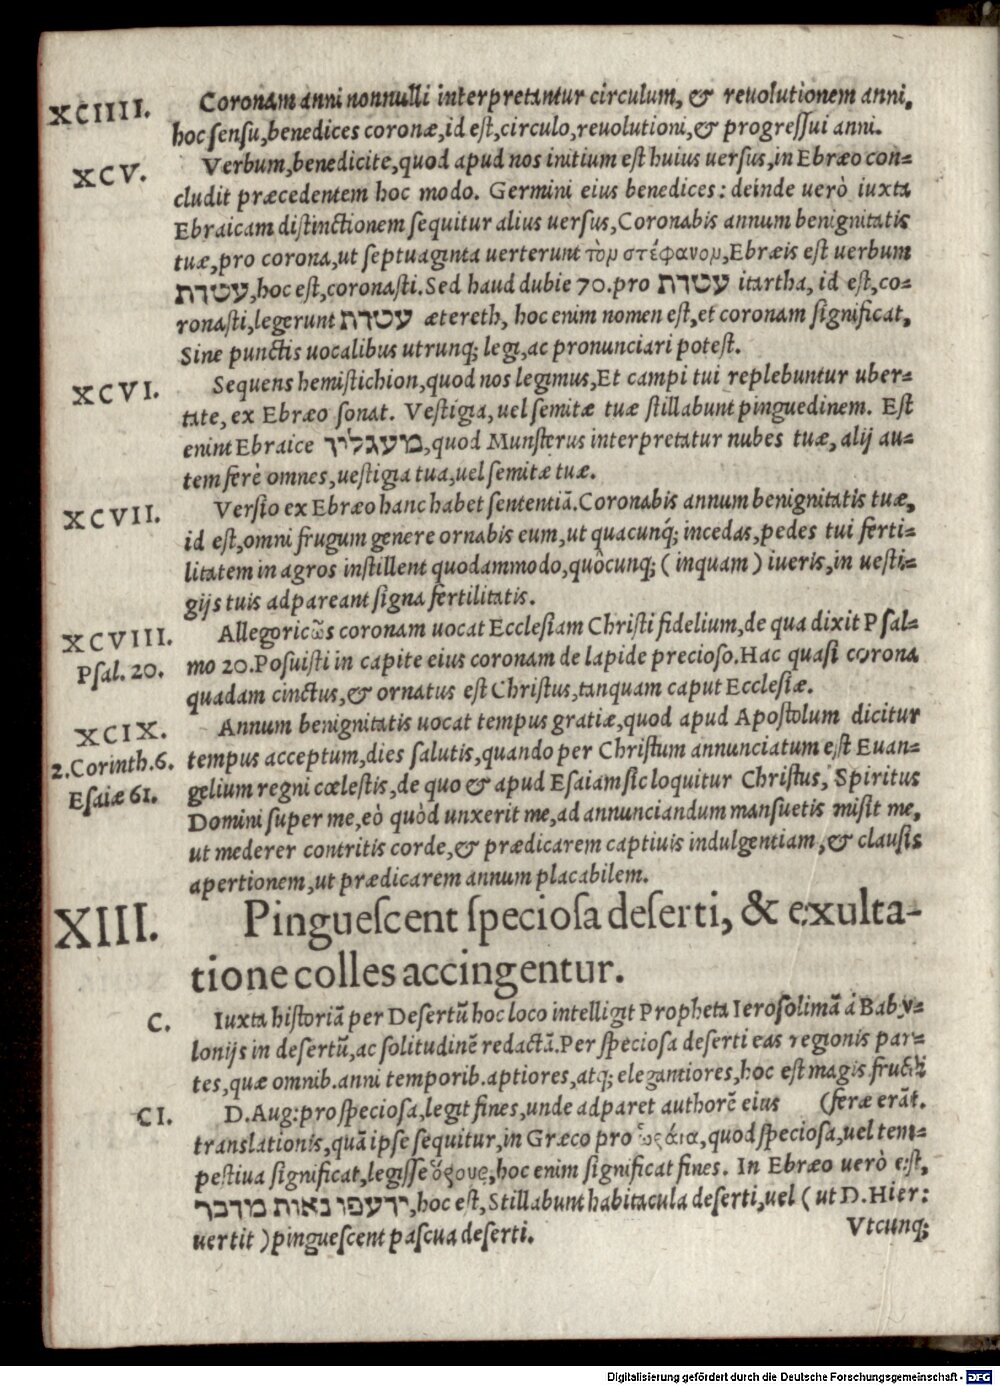 XCIIII. Coronam anni nonnulli interpretantur circulum, & reuolutionem anni,
hoc sensu, benedices coronæ, id est, circulo, reuolutioni, & progressui anni.
XCV. Verbum, benedicite, quod apud nos initium est huius uersus, in Ebræo con=
cludit præcedentem hoc modo. Germini eius benedices: deinde uerò iuxta
Ebraicam distinctionem sequitur alius uersus, Coronabis annum benignitatis
tuæ, pro corona, ut septuaginta uerterunt τὸν στέφανον, Ebræis est uerbum
עטרת, hoc est, coronasti. Sed haud dubie 70. pro עטרת itartha, id est, co=
ronasti, legerunt עטרת ætereth, hoc enim nomen est, et coronam significat,
Sine punctis uocalibus utrunq; legi, ac pronunciari potest.
XCVI. Sequens hemistichion, quod nos legimus, Et campi tui replebuntur uber=
tate, ex Ebræo sonat. Vestigia, uel semitæ tuæ stillabunt pinguedinem. Est
enim Ebraice מעגליך, quod Munsterus interpretatur nubes tuæ, alij au=
tem ferè omnes, uestigia tua, uel semitæ tuæ.
XCVII. Versio ex Ebræo hanc habet sententiā. Coronabis annum benignitatis tuæ,
id est, omni frugum genere ornabis eum, ut quacunq́; incedas, pedes tui ferti=
litatem in agros instillent quodammodo, quôcunq; (inquam) iueris, in uesti=
gijs tuis adpareant signa fertilitatis.
XCVIII. Allegoricῶs coronam uocat Ecclesiam Christi fidelium, de qua dixit Psal=
Psal. 20. mo 20. Posuisti in capite eius coronam de lapide precioso. Hac quasi corona
quadam cinctus, & ornatus est Christus, tanquam caput Ecclesiæ.
XCIX. Annum benignitatis uocat tempus gratiæ, quod apud Apostolum dicitur
2. Corinth. 6. tempus acceptum, dies salutis, quando per Christum annunciatum est Euan=
Esaiæ 61. gelium regni cœlestis, de quo & apud Esaiam sic loquitur Christus, Spiritus
Domini super me, eò quòd unxerit me, ad annunciandum mansuetis misit me,
ut mederer contritis corde, & prædicarem captiuis indulgentiam, & clausis
apertionem, ut prædicarem annum placabilem.
XIII. Pinguescent speciosa deserti, & exulta-
tione colles accingentur.
C. Iuxta historiā per Desertū hoc loco intelligit Propheta Ierosolimā á Baby=
lonijs in desertū, ac solitudinē redactā. Per speciosa deserti eas regionis par=
tes, quæ omnib. anni temporib. aptiores, atq; elegantiores, hoc est magis fructi
CI. D. Aug: pro speciosa, legit fines, unde adparet authorē eius (feræ erāt.
translationis, quā ipse sequitur, in Græco pro ὡραῖα, quod speciosa, uel tem=
pestiua significat, legisse ὅρους, hoc enim significat fines. In Ebræo uerò est,
ירעפו נאות מדבר, hoc est, Stillabunt habitacula deserti, uel (ut D. Hier:
uertit) pinguescent pascua deserti. Vtcunq;
Digitalisierung gefördert durch die Deutsche Forschungsgemeinschaft - DFG